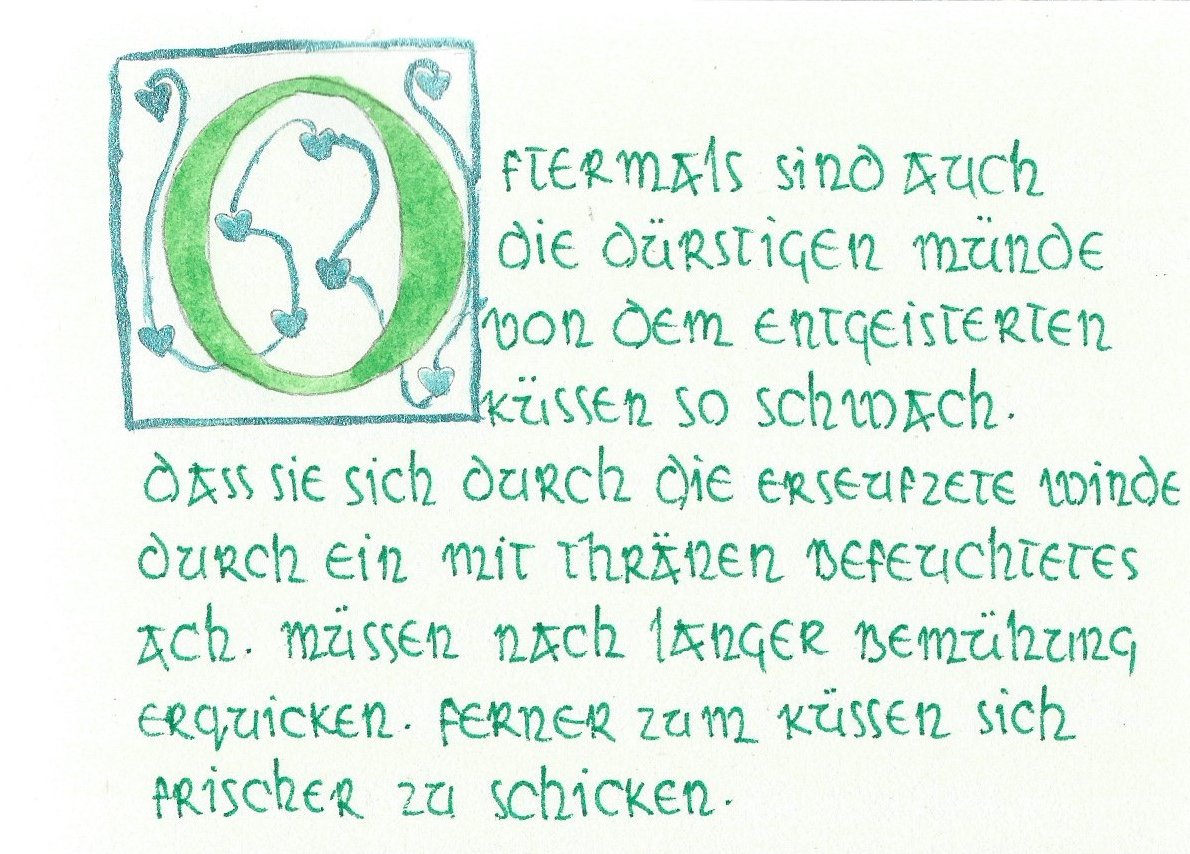 Oftermals sind auch
die dürstigen Münde
von dem entgeisterten
Küssen so schwach.
Dass sie sich durch die erseufzete Winde
durch ein mit Thränen befeuchtetes
Ach. Müssen nach langer Bemühung
erquicken. Ferner zum Küssen sich
frischer zu schicken.